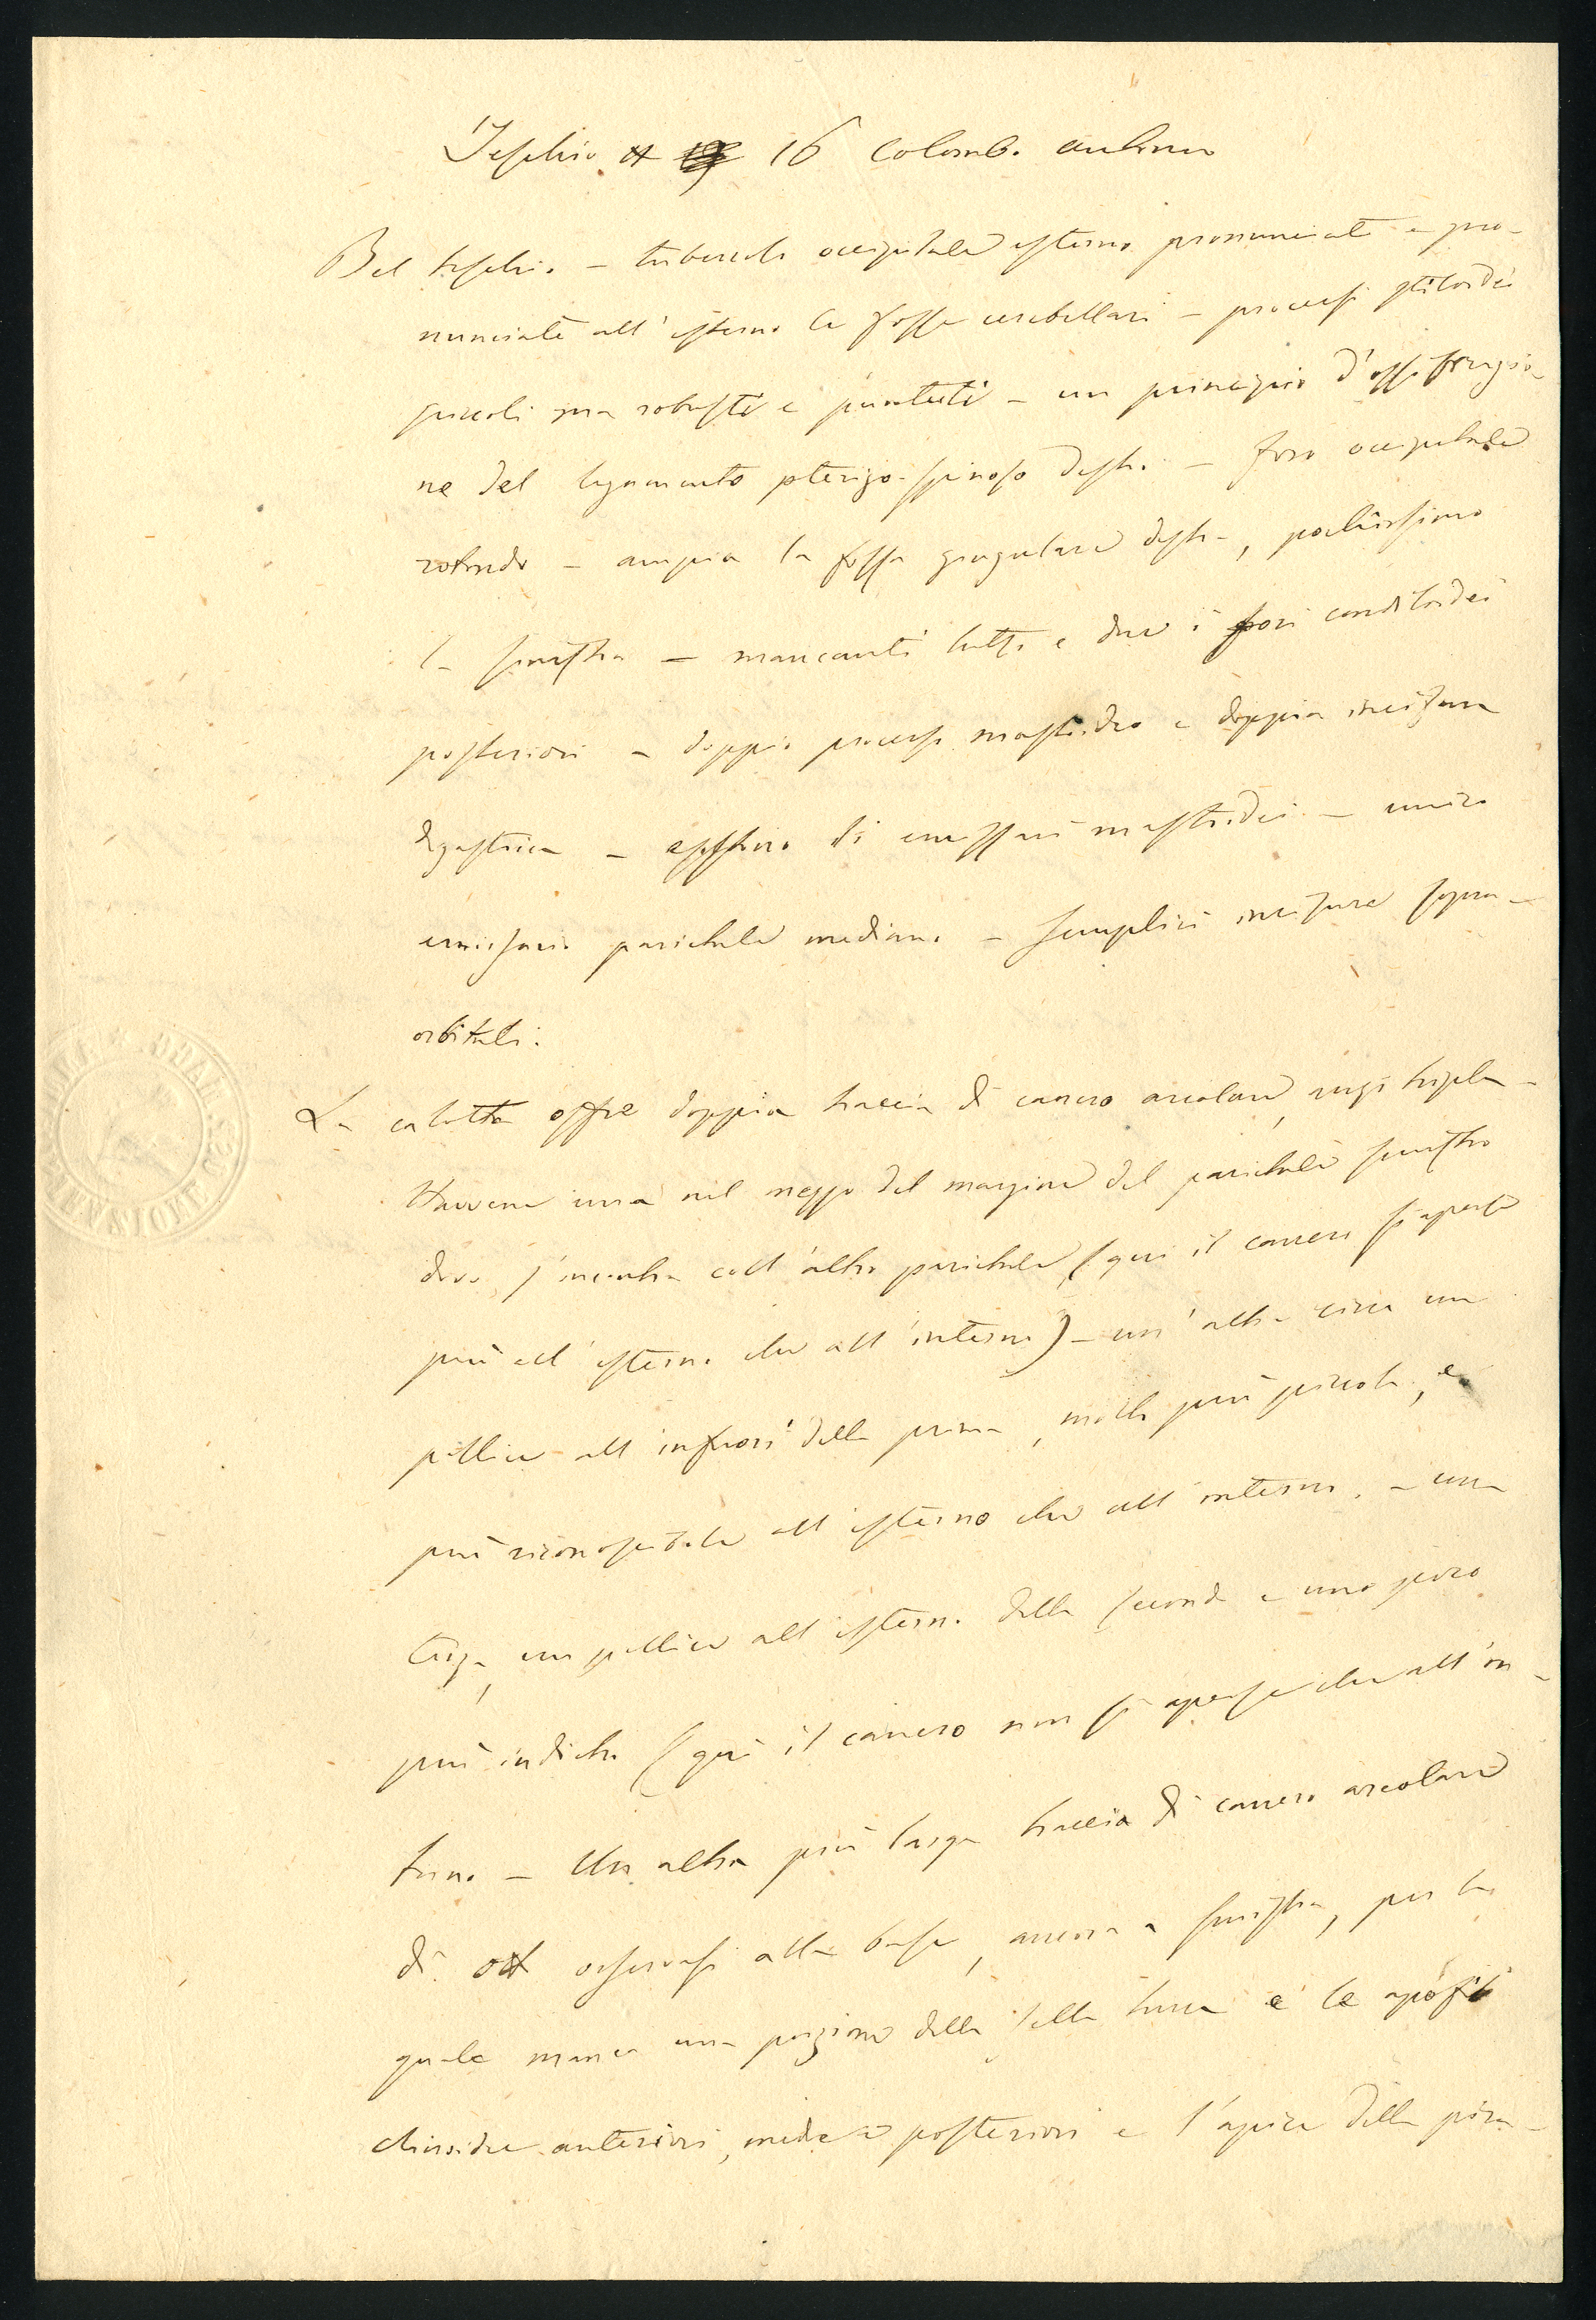 Teschio 16 Colomb.
Bel teschio. – tubercolo occipitale esterno pronunciato e pro-
nunciate all'esterno le fosse cerebellari – processi stiloidei
piccoli ma robusti e puntuti – un principio d'ossificazio-
ne del legamento pterigo-spinoso destro – foro occipitale
rotondo – ampia la fossa giugulare destra, pochissimo
la sinistra – mancanti tutti e due i fori condiloidei
posteriori – doppio processo mastoideo e doppia incisura
digastrica – di emissari mastoidei – unico
emissario parietale mediano – semplici incisure sopra-
orbitali.
La calotta offre doppia traccia di cancro areolare, anzi tripla –
Havvene una nel mezzo del margine del parietale sinistro
dove s'incontra coll'altro parietale (qui il cancro si aperse
più all'esterno che all'interno) – un'altra circa un
pollice all'infuori della prima, molto più piccola, e
più riconoscibile all'esterno che all'interno. – una
terza, un pollice all'esterno della seconda e uno poco
più indietro (qui il cancro non si aperse che all'in-
terno – Un altra più larga traccia di cancro areolare
di osservasi alla base, ancora a sinistra, per la
quale manca una porzione della sella turca e le apofisi
clinoidee anteriori, medie e posteriori e l'apice della pira-